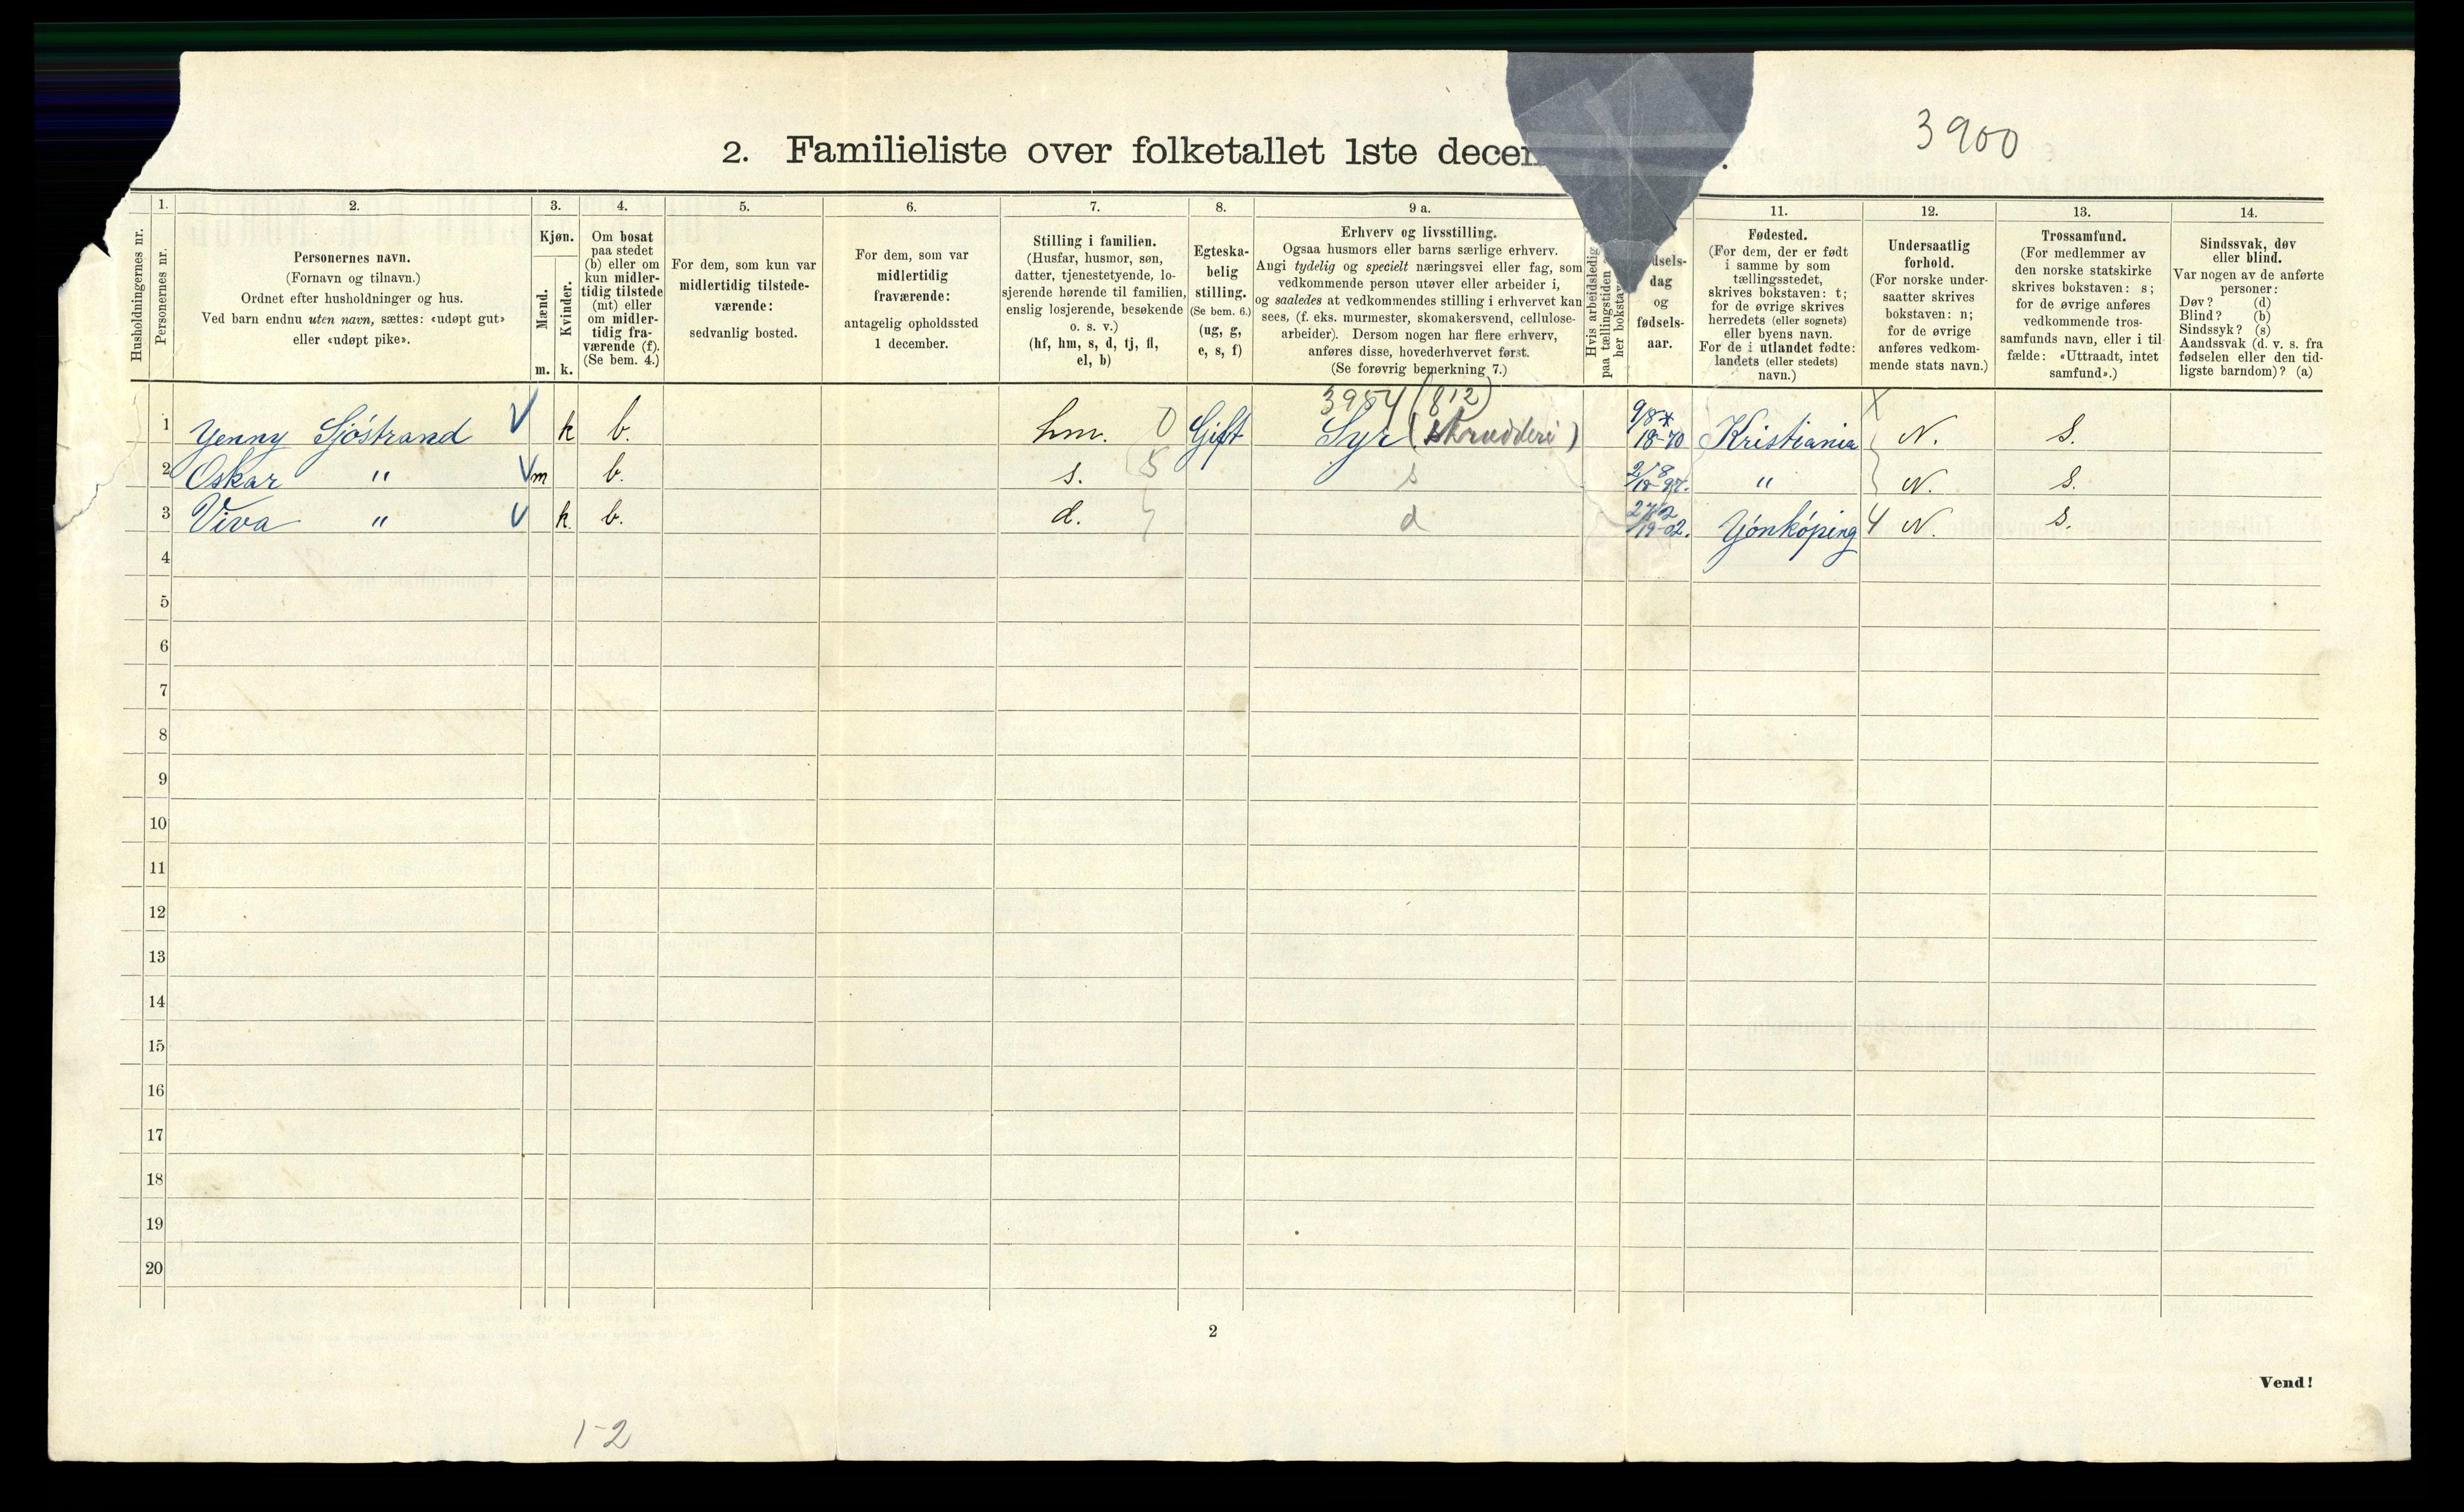 3900
2. Familieliste over folketallet 1ste decem
1. 2. 3. 4. 5. 6. 7. 8. 9 a. 11. 12. 13. 14.
Husholdningernes nr.
Personernes nr.
Personernes navn.
(Fornavn og tilnavn.)
Ordnet efter husholdninger og hus.
Ved barn endnu uten navn, sættes: «udøpt gut»
eller «udøpt pike».
Kjøn.
Mænd.
Kvinder.
m. k.
Om bosat
paa stedet
(b) eller om
kun midler-
tidig tilstede
(mt) eller
om midler-
tidig fra-
værende (f).
(Se bem. 4.)
For dem, som kun var
midlertidig tilstede-
værende:
sedvanlig bosted.
For dem, som var
midlertidig
fraværende:
antagelig opholdssted
1 december.
Stilling i familien.
(Husfar, husmor, søn,
datter, tjenestetyende, lo-
sjerende hørende til familien,
enslig losjerende, besøkende
o. s. v.)
(hf, hm, s, d, tj, fl,
el, b)
Egteska-
belig
stilling.
(Se bem. 6.)
(ug, g,
e, s, f)
Erhverv og livsstilling.
Ogsaa husmors eller barns særlige erhverv.
Angi tydelig og specielt næringsvei eller fag, som
vedkommende person utøver eller arbeider i,
og saaledes at vedkommendes stilling i erhvervet kan
sees, (f. eks. murmester, skomakersvend, cellulose-
arbeider). Dersom nogen har flere erhverv,
anføres disse, hovederhvervet først.
(Se forøvrig bemerkning 7.)
Hvis arbeidsledig
paa tællingstiden
her bokstav
dsels-
dag
og
fødsels-
aar.
Fødested.
(For dem, der er født
i samme by som
tællingsstedet,
skrives bokstaven: t;
for de øvrige skrives
herredets (eller sognets)
eller byens navn.
For de i utlandet fødte:
landets (eller stedets)
navn.)
Undersaatlig
forhold.
(For norske under-
saatter skrives
bokstaven: n;
for de øvrige
anføres vedkom-
mende stats navn.)
Trossamfund.
(For medlemmer av
den norske statskirke
skrives bokstaven: s;
for de øvrige anføres
vedkommende tros-
samfunds navn, eller i til-
fælde: «Uttraadt, intet
samfund».)
Sindssvak, døv
eller blind.
Var nogen av de anførte
personer:
Døv? (d)
Blind? (b)
Sindssyk? (s)
Aandssvak (d. v. s. fra
fødselen eller den tid-
ligste barndom)? (a)
3954 (812)
1 Yenny Sjöstrand k b. hm. 0 Gift Syr (skrædderi) 9/8 18-70 Kristiania N. S.
2 Oskar " m b. s. s " N. S.
3 Viva " k. b. d. d Yönköping N. S.
4
5
6
7
8
9
10
11
12
13
14
15
16
17
18
19
20
2
Vend!
1-2